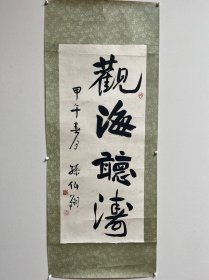 觀海聽濤
甲午春月
孫伯翔